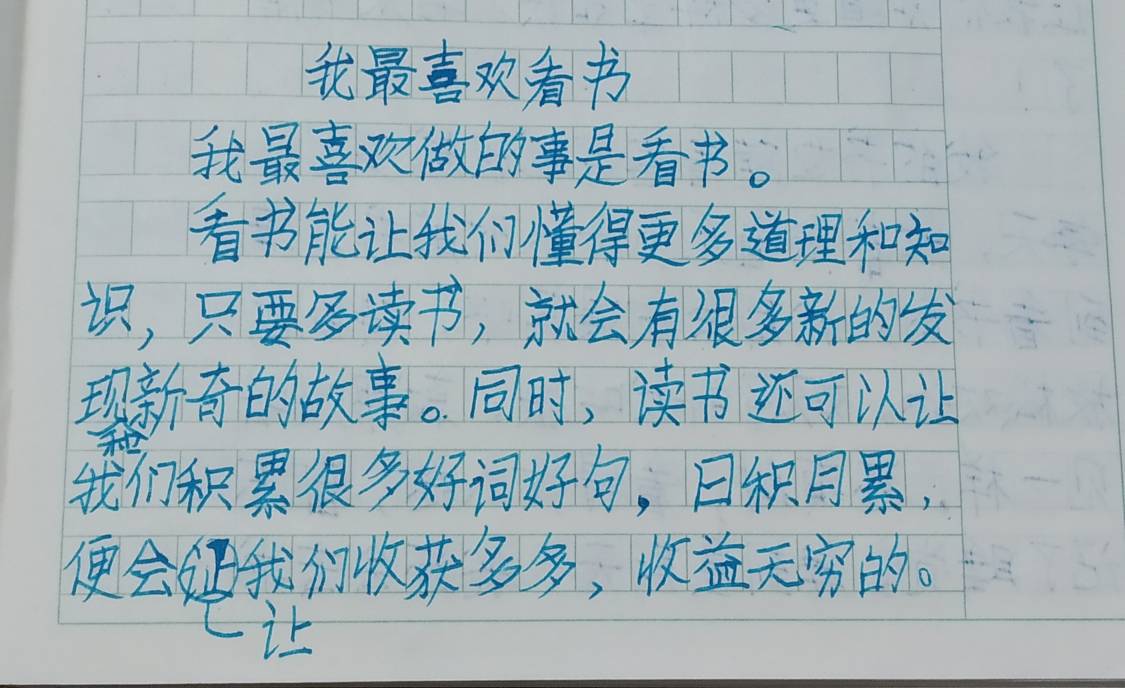 我最喜欢看书
我最喜欢做的事是看书。
看书能让我们懂得更多道理和知
识,只要多读书,就会有很多新的发
现和新奇的故事。同时,读书还可以让
我们积累很多好词好句。日积月累,
便会让我们收获多多,收益无穷的。